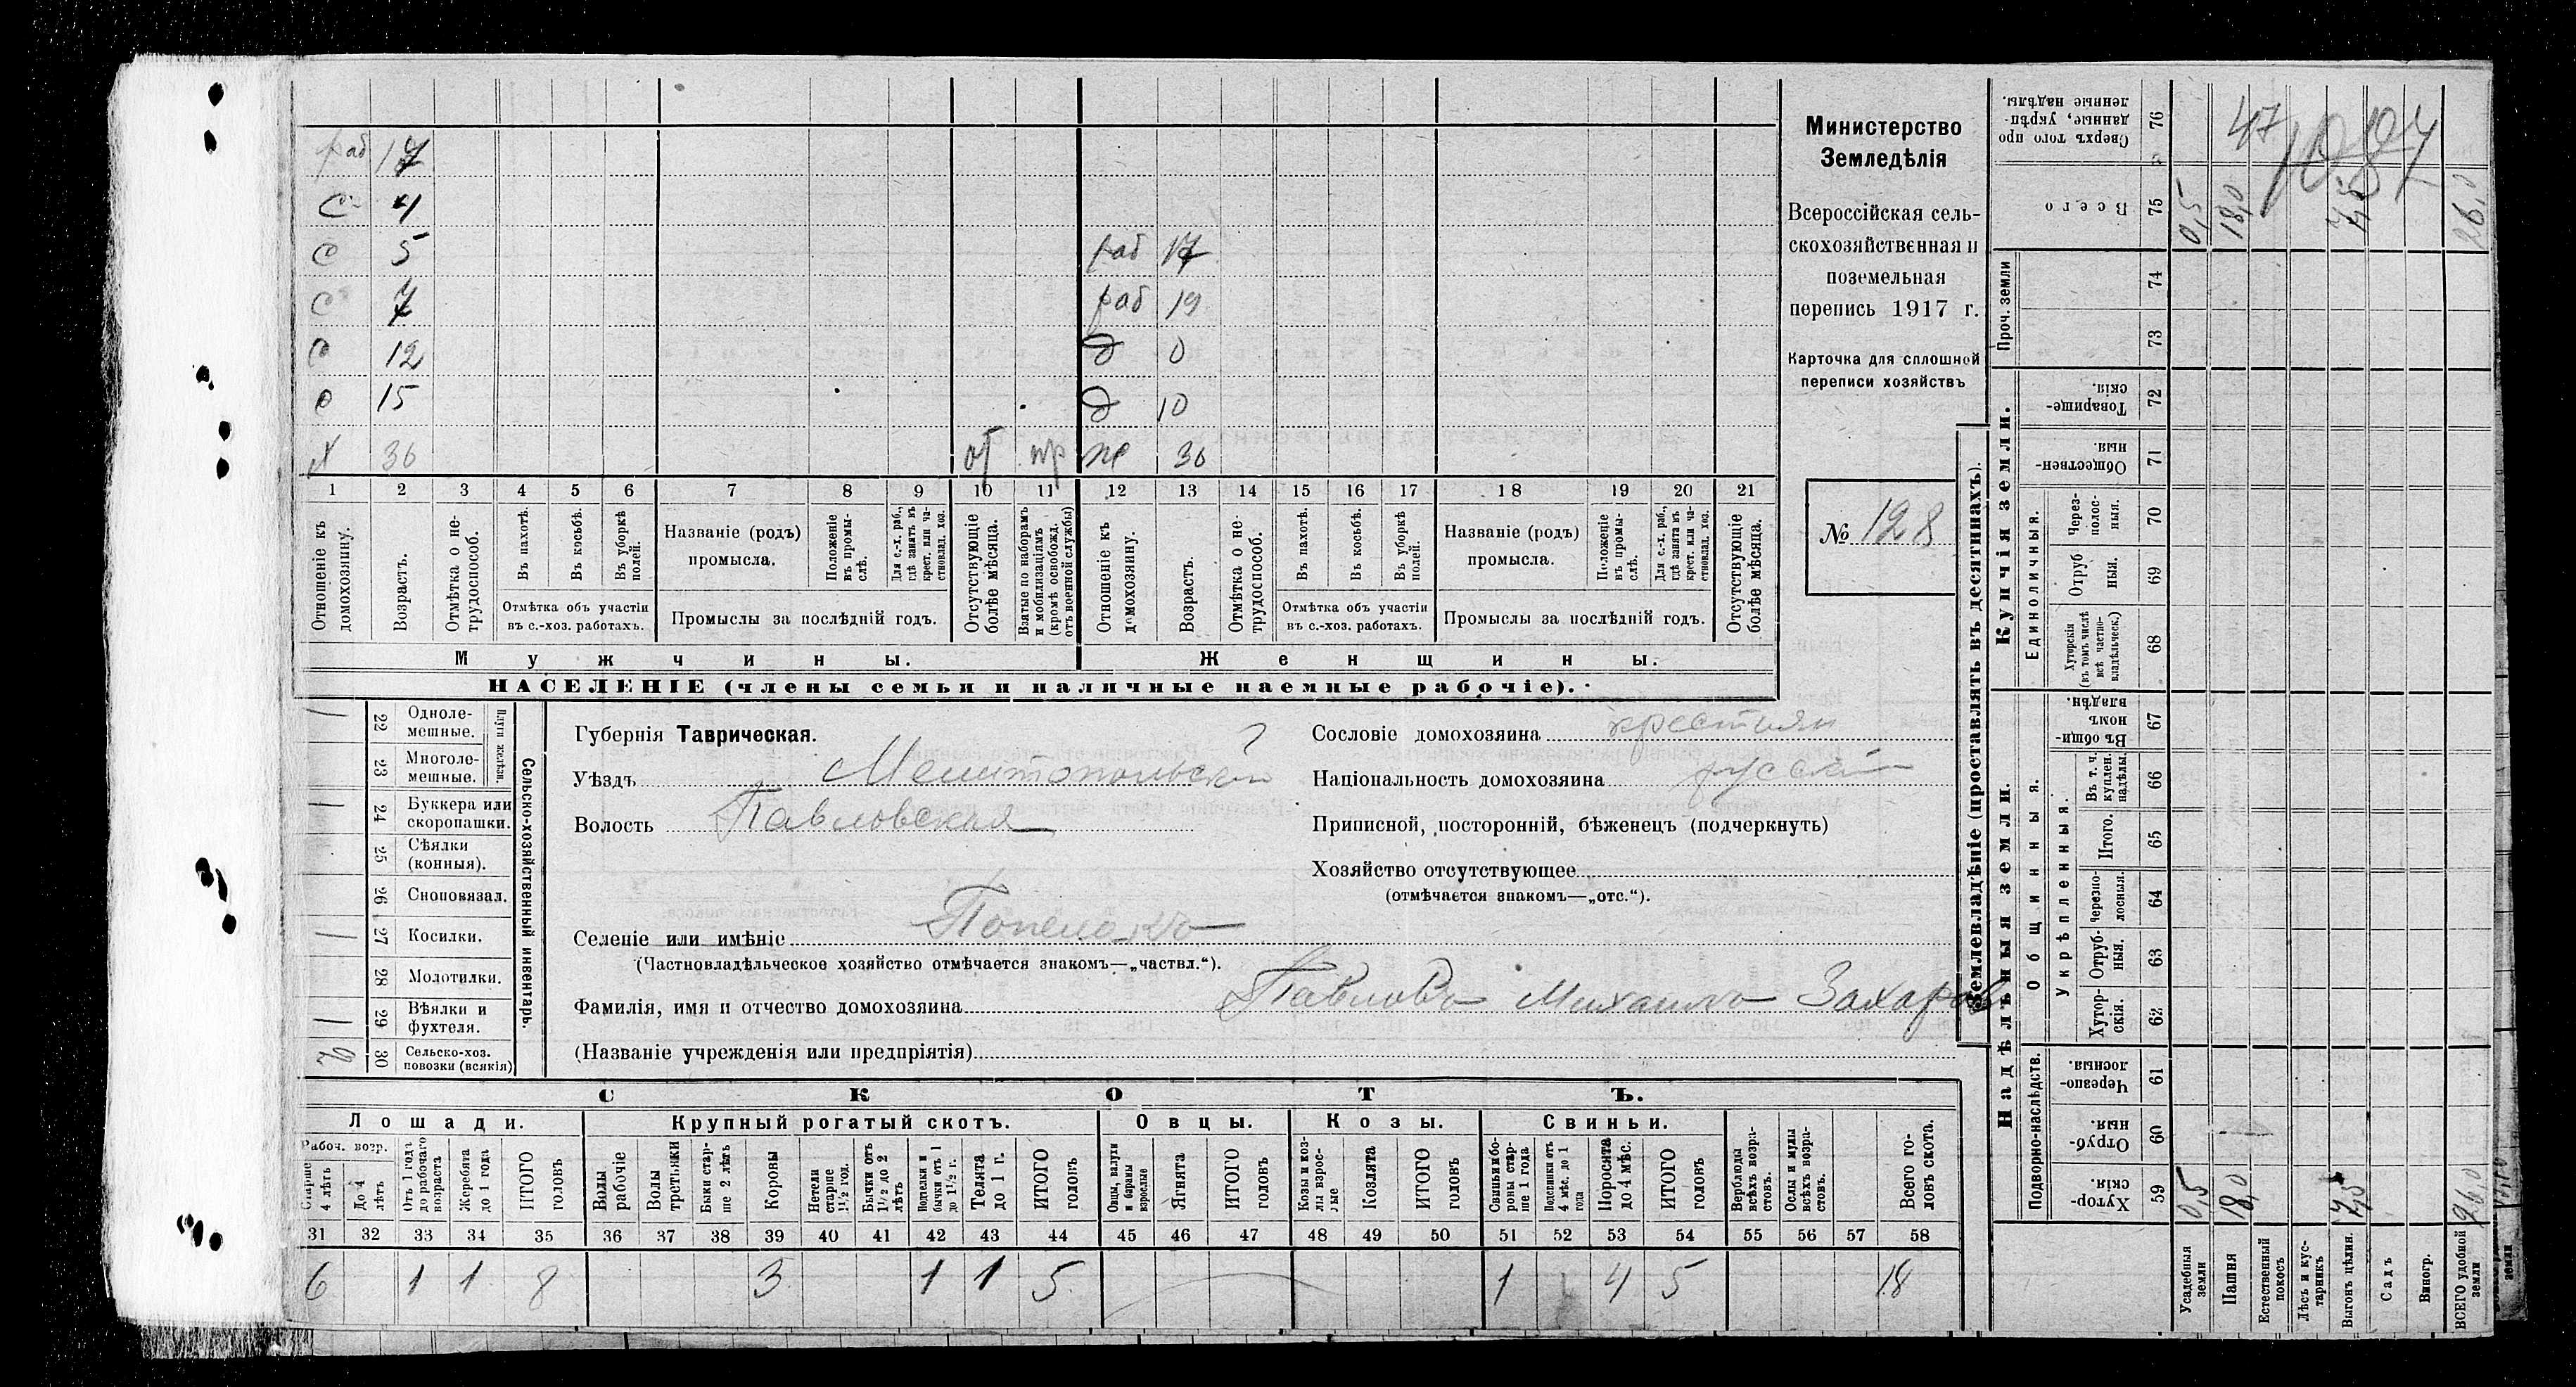 раб 17
с 4
с 5
с 7
с 12
с 15
х 36 от пр
раб 17
раб 19
д 0
д 10
ж 36
1 2 3 4 5 6 7 8 9 10 11 12 13 14 15 16 17 18 19 20 21
Отношеніе къ домохозяину.
Возрастъ.
Отмѣтка о нетрудоспособ.
Въ пахотѣ.
Въ косьбѣ.
Въ уборкѣ полей.
Отмѣтка объ участіи въ с.-хоз. работахъ.
Названіе (родъ) промысла.
Положеніе въ промыслѣ.
Для с.-х. раб., гдѣ занятъ въ крест. или частновлад. хоз.
Промыслы за послѣдній годъ.
Отсутствующіе болѣе мѣсяца.
Взятые по наборамъ и мобилизаціямъ (кромѣ освобожд. отъ военной службы)
Отношеніе къ домохозяину.
Возрастъ.
Отмѣтка о нетрудоспособ.
Въ пахотѣ.
Въ косьбѣ.
Въ уборкѣ полей.
Отмѣтка объ участіи въ с.-хоз. работахъ.
Названіе (родъ) промысла.
Положеніе въ промыслѣ.
Для с.-х. раб., гдѣ занята въ крест. или частновлад. хоз.
Промыслы за послѣдній годъ.
Отсутствующіе болѣе мѣсяца.
Мужчины.
Женщины.
НАСЕЛЕНІЕ (члены семьи и наличные наемные рабочіе).
Министерство
Земледѣлія
Всероссійская сель-
скохозяйственная и
поземельная
перепись 1917 г.
Карточка для сплошной
переписи хозяйствъ
№ 128
Сельско-хозяйственный инвентарь.
22 Однолемешные. 1
23 Многолемешные.
24 Буккера или скоропашки. 1
25 Сѣялки (конныя).
26 Сноповязал.
27 Косилки. 1
28 Молотилки.
29 Вѣялки и фухтеля. 1
30 Сельско-хоз. повозки (всякія)
Губернія Таврическая.
Уѣздъ Мелитопольскій
Волость Павловская
Селеніе или имѣніе
(Частновладѣльческое хозяйство отмѣчается знакомъ—„частвл.“).
Фамилія, имя и отчество домохозяина Павловъ Михаилъ Захаров
(Названіе учрежденія или предпріятія)
Сословіе домохозяина крестьян
Національность домохозяина русскій
Приписной, посторонній, бѣженецъ (подчеркнуть)
Хозяйство отсутствующее
(отмѣчается знакомъ—„отс.“).
СКОТЪ.
Лошади. Крупный рогатый скотъ. Овцы. Козы. Свиньи.
Рабоч. возр.
Старше 4 лѣтъ
До 4 лѣтъ
Отъ 1 года до рабочаго возраста
Жеребята до 1 года
ИТОГО головъ
Волы рабочіе
Волы третьяки
Быки старше 2 лѣтъ
Коровы
Нетели старше 1½ год.
Бычки отъ 1½ до 2 лѣтъ
Подтелки и бычки отъ 1 до 1½ г.
Телята до 1 г.
ИТОГО головъ
Овцы, валухи и бараны взрослые
Ягнята
ИТОГО головъ
Козы и козлы взрослые
Козлята
ИТОГО головъ
Свиньи и боровы старше 1 года
Подсвинки отъ 4 мѣс. до 1 года
Поросята до 4 мѣс.
ИТОГО головъ
Верблюды всѣхъ возрастовъ.
Ослы и мулы всѣхъ возрастовъ.
Всего головъ скота.
31 32 33 34 35 36 37 38 39 40 41 42 43 44 45 46 47 48 49 50 51 52 53 54 55 56 57 58
6 1 1 8 3 1 1 5 1 4 5 18
Землевладѣніе (проставлять въ десятинахъ).
Купчія земли.
Надѣльныя земли.
Сверхъ того проданные, укрѣпленные надѣлы. 76
Всего 75
Проч. земли 74 73
Товарищескія. 72
Общественныя. 71
Единоличныя.
Черезполосныя. 70
Отрубныя. 69
Хуторскія (въ томъ числѣ всѣ частновладѣльческ.) 68
Общинныя.
Въ общинномъ владѣн. 67
Укрѣпленныя.
Въ т. ч. куплен. надѣлы. 66
Итого. 65
Черезполосныя. 64
Отрубныя. 63
Хуторскія. 62
Подворно-наслѣдств.
Черезполосныя. 61
Отрубныя. 60
Хуторскія. 59
Усадебныя земли
Пашня
Естественный покосъ
Лѣсъ и кустарникъ
Выгонъ цѣлин.
Садъ
Виногр.
ВСЕГО удобной земли
0,5 18,0 7,5 26,0
0,5 18,0 7,5 26,0
47